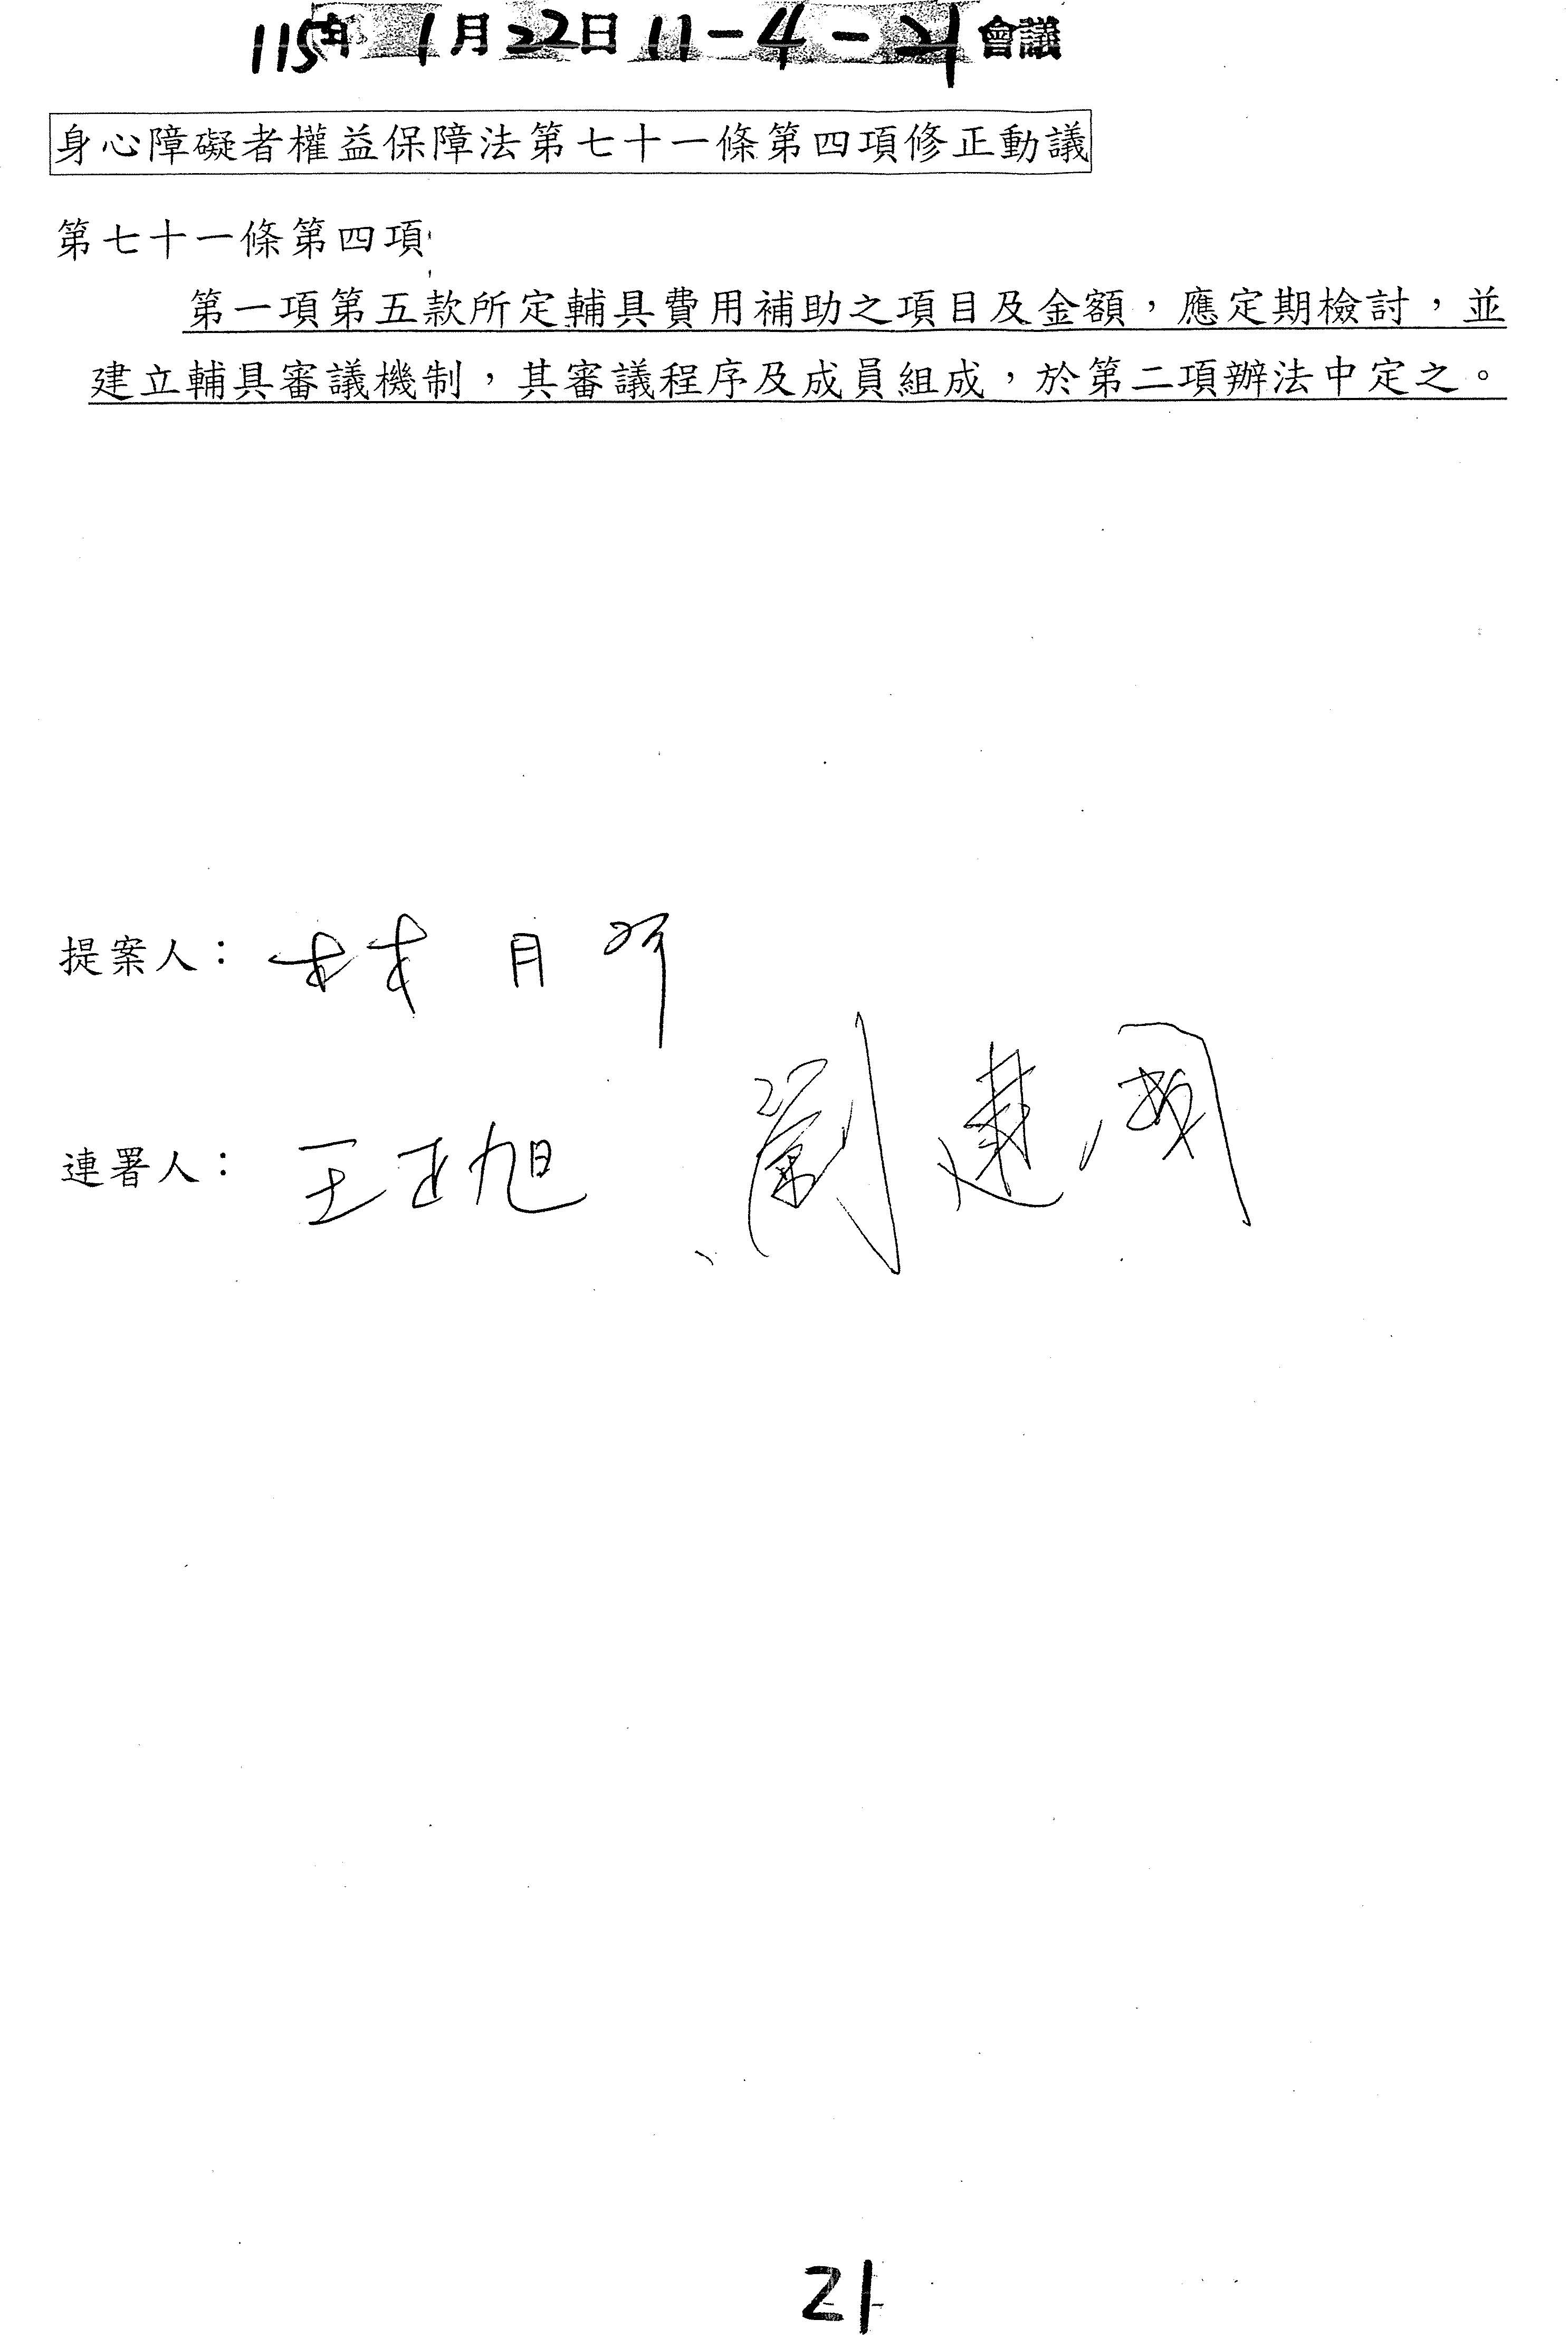 115年1月22日11-4-21會議
身心障礙者權益保障法第七十一條第四項修正動議
第七十一條第四項
第一項第五款所定輔具費用補助之項目及金額，應定期檢討，並
建立輔具審議機制，其審議程序及成員組成，於第二項辦法中定之。
提案人：林月琴
連署人：王正旭 劉建國
21